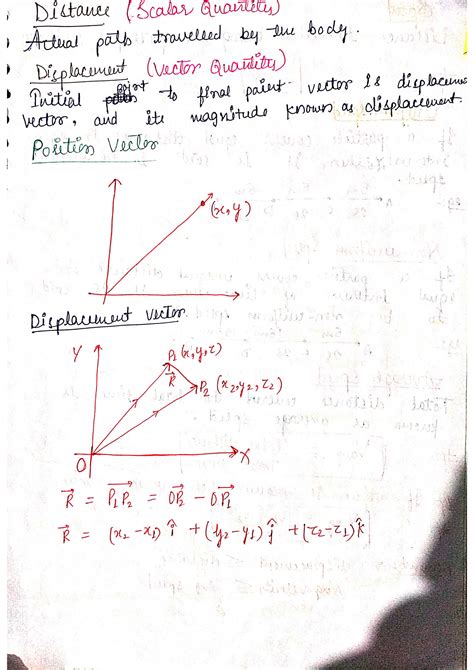 Distance (Scalar Quantities)
Actual path travelled by the body.
Displacement (Vector Quantities)
Initial point to final point vector is displaceme
vector, and its magnitude known as displacement.
Position Vector
(x, y)
Displacement vector
Y
P₁ (x, y, z)
R⃗
P₂ (x₂, y₂, z₂)
O
X
R⃗ = P₁P₂⃗ = OP₂⃗ - OP₁⃗
R⃗ = (x₂ - x₁) î + (y₂ - y₁) ĵ + (z₂ - z₁) k̂